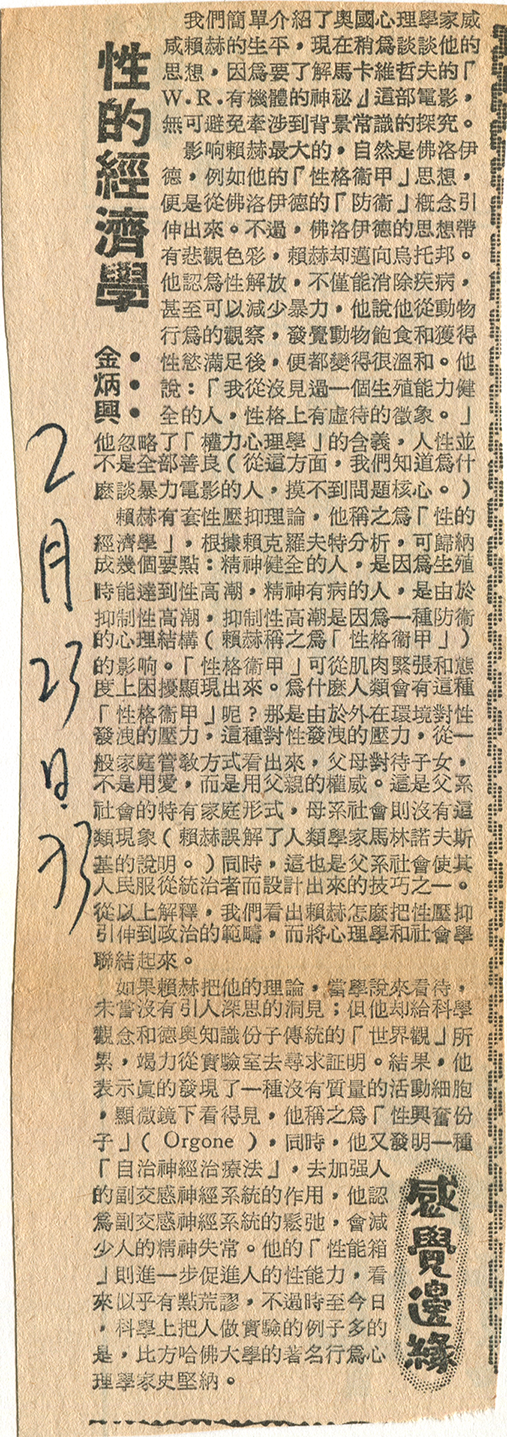 性的經濟學
金炳興
我們簡單介紹了奧國心理學家威
咸賴赫的生平，現在稍為談談他的
思想，因為要了解馬卡維哲夫的「
W.R.有機體的神秘」這部電影，
無可避免牽涉到背景常識的探究。
影响賴赫最大的，自然是佛洛伊
德，例如他的「性格衛甲」思想，
便是從佛洛伊德的「防衛」概念引
伸出來。不過，佛洛伊德的思想帶
有悲觀色彩，賴赫却邁向烏托邦。
他認為性解放，不僅能消除疾病，
甚至可以減少暴力，他說他從動物
行為的觀察，發覺動物飽食和獲得
性慾滿足後，便都變得很溫和。他
說：「我從沒見過一個生殖能力健
全的人，性格上有虐待的徵象。」
他忽略了「權力心理學」的含義，人性並
不是全部善良（從這方面，我們知道為什
麽談暴力電影的人，摸不到問題核心。）
賴赫有套性壓抑理論，他稱之為「性的
經濟學」，根據賴克羅夫特分析，可歸納
成幾個要點：精神健全的人，是因為生殖
時能達到性高潮，精神有病的人，是由於
抑制性高潮，抑制性高潮是因為一種防衛
的心理結構（賴赫稱之為「性格衛甲」）
的影响。「性格衛甲」可從肌肉緊張和態
度上困擾顯現出來。為什麽人類會有這種
「性格衛甲」呢？那是由於外在環境對性
發洩的壓力，這種對性發洩的壓力，從一
般家庭管教方式看出來，父母對待子女，
不是用愛，而是用父親的權威。這是父系
社會的特有家庭形式，母系社會則沒有這
類現象（賴赫誤解了人類學家馬林諾夫斯
基的說明。）同時，這也是父系社會使其
人民服從統治者而設計出來的技巧之一。
從以上解釋，我們看出賴赫怎麽把性壓抑
引伸到政治的範疇，而將心理學和社會學
聯結起來。
如果賴赫把他的理論，當學說來看待，
未嘗沒有引人深思的洞見；但他却給科學
觀念和德奧知識份子傳統的「世界觀」所
累，竭力從實驗室去尋求証明。結果，他
表示眞的發現了一種沒有質量的活動細胞
，顯微鏡下看得見，他稱之為「性興奮份
子」（Orgone），同時，他又發明一種
「自治神經治療法」，去加强人
的副交感神經系統的作用，他認
為副交感神經系統的鬆弛，會減
少人的精神失常。他的「性能箱
」則進一步促進人的性能力，看
來似乎有點荒謬，不過時至今日
，科學上把人做實驗的例子多的
是，比方哈佛大學的著名行為心
理學家史堅納。
感覺邊緣
2月23日.73